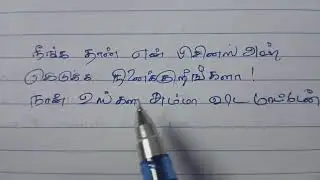 நீங்க தான் என் பிசினஸ் அஹ்
கெடுக்க நினைக்குறீங்களா!
நான் உங்கள சும்மா விட மாட்டேன்